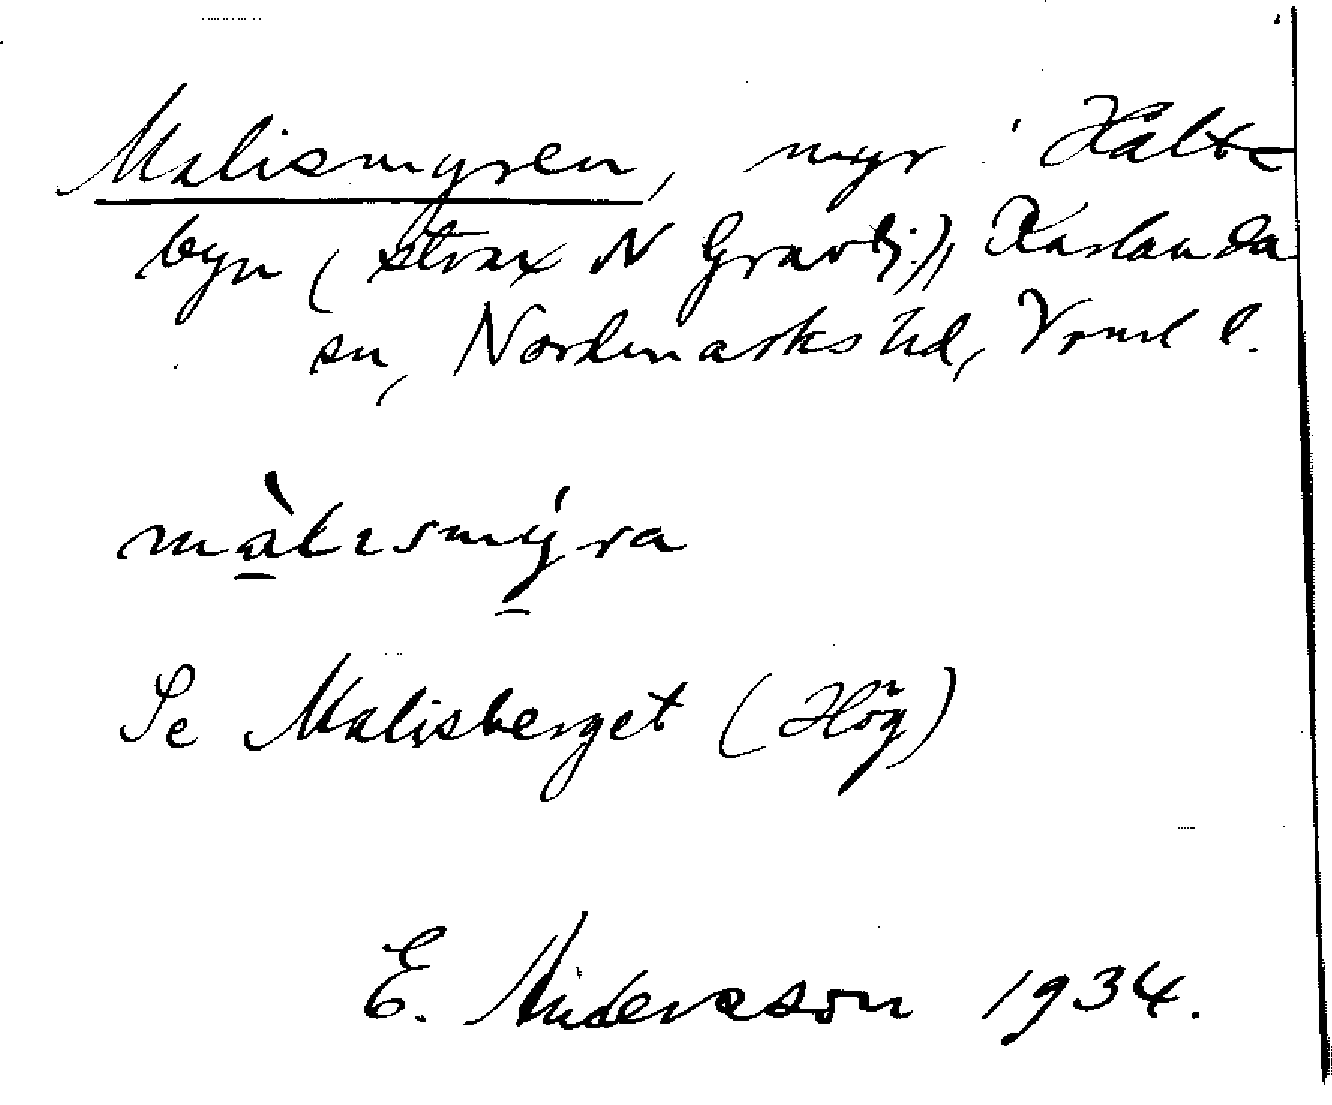 Malismyren, myr i Hålte-
byn (strax N Gravbj.), Karlanda
sn, Nordmarks hd, Vrml l.
màlısmýra
Se Malisberget (Hög)
E. Andersson 1934.